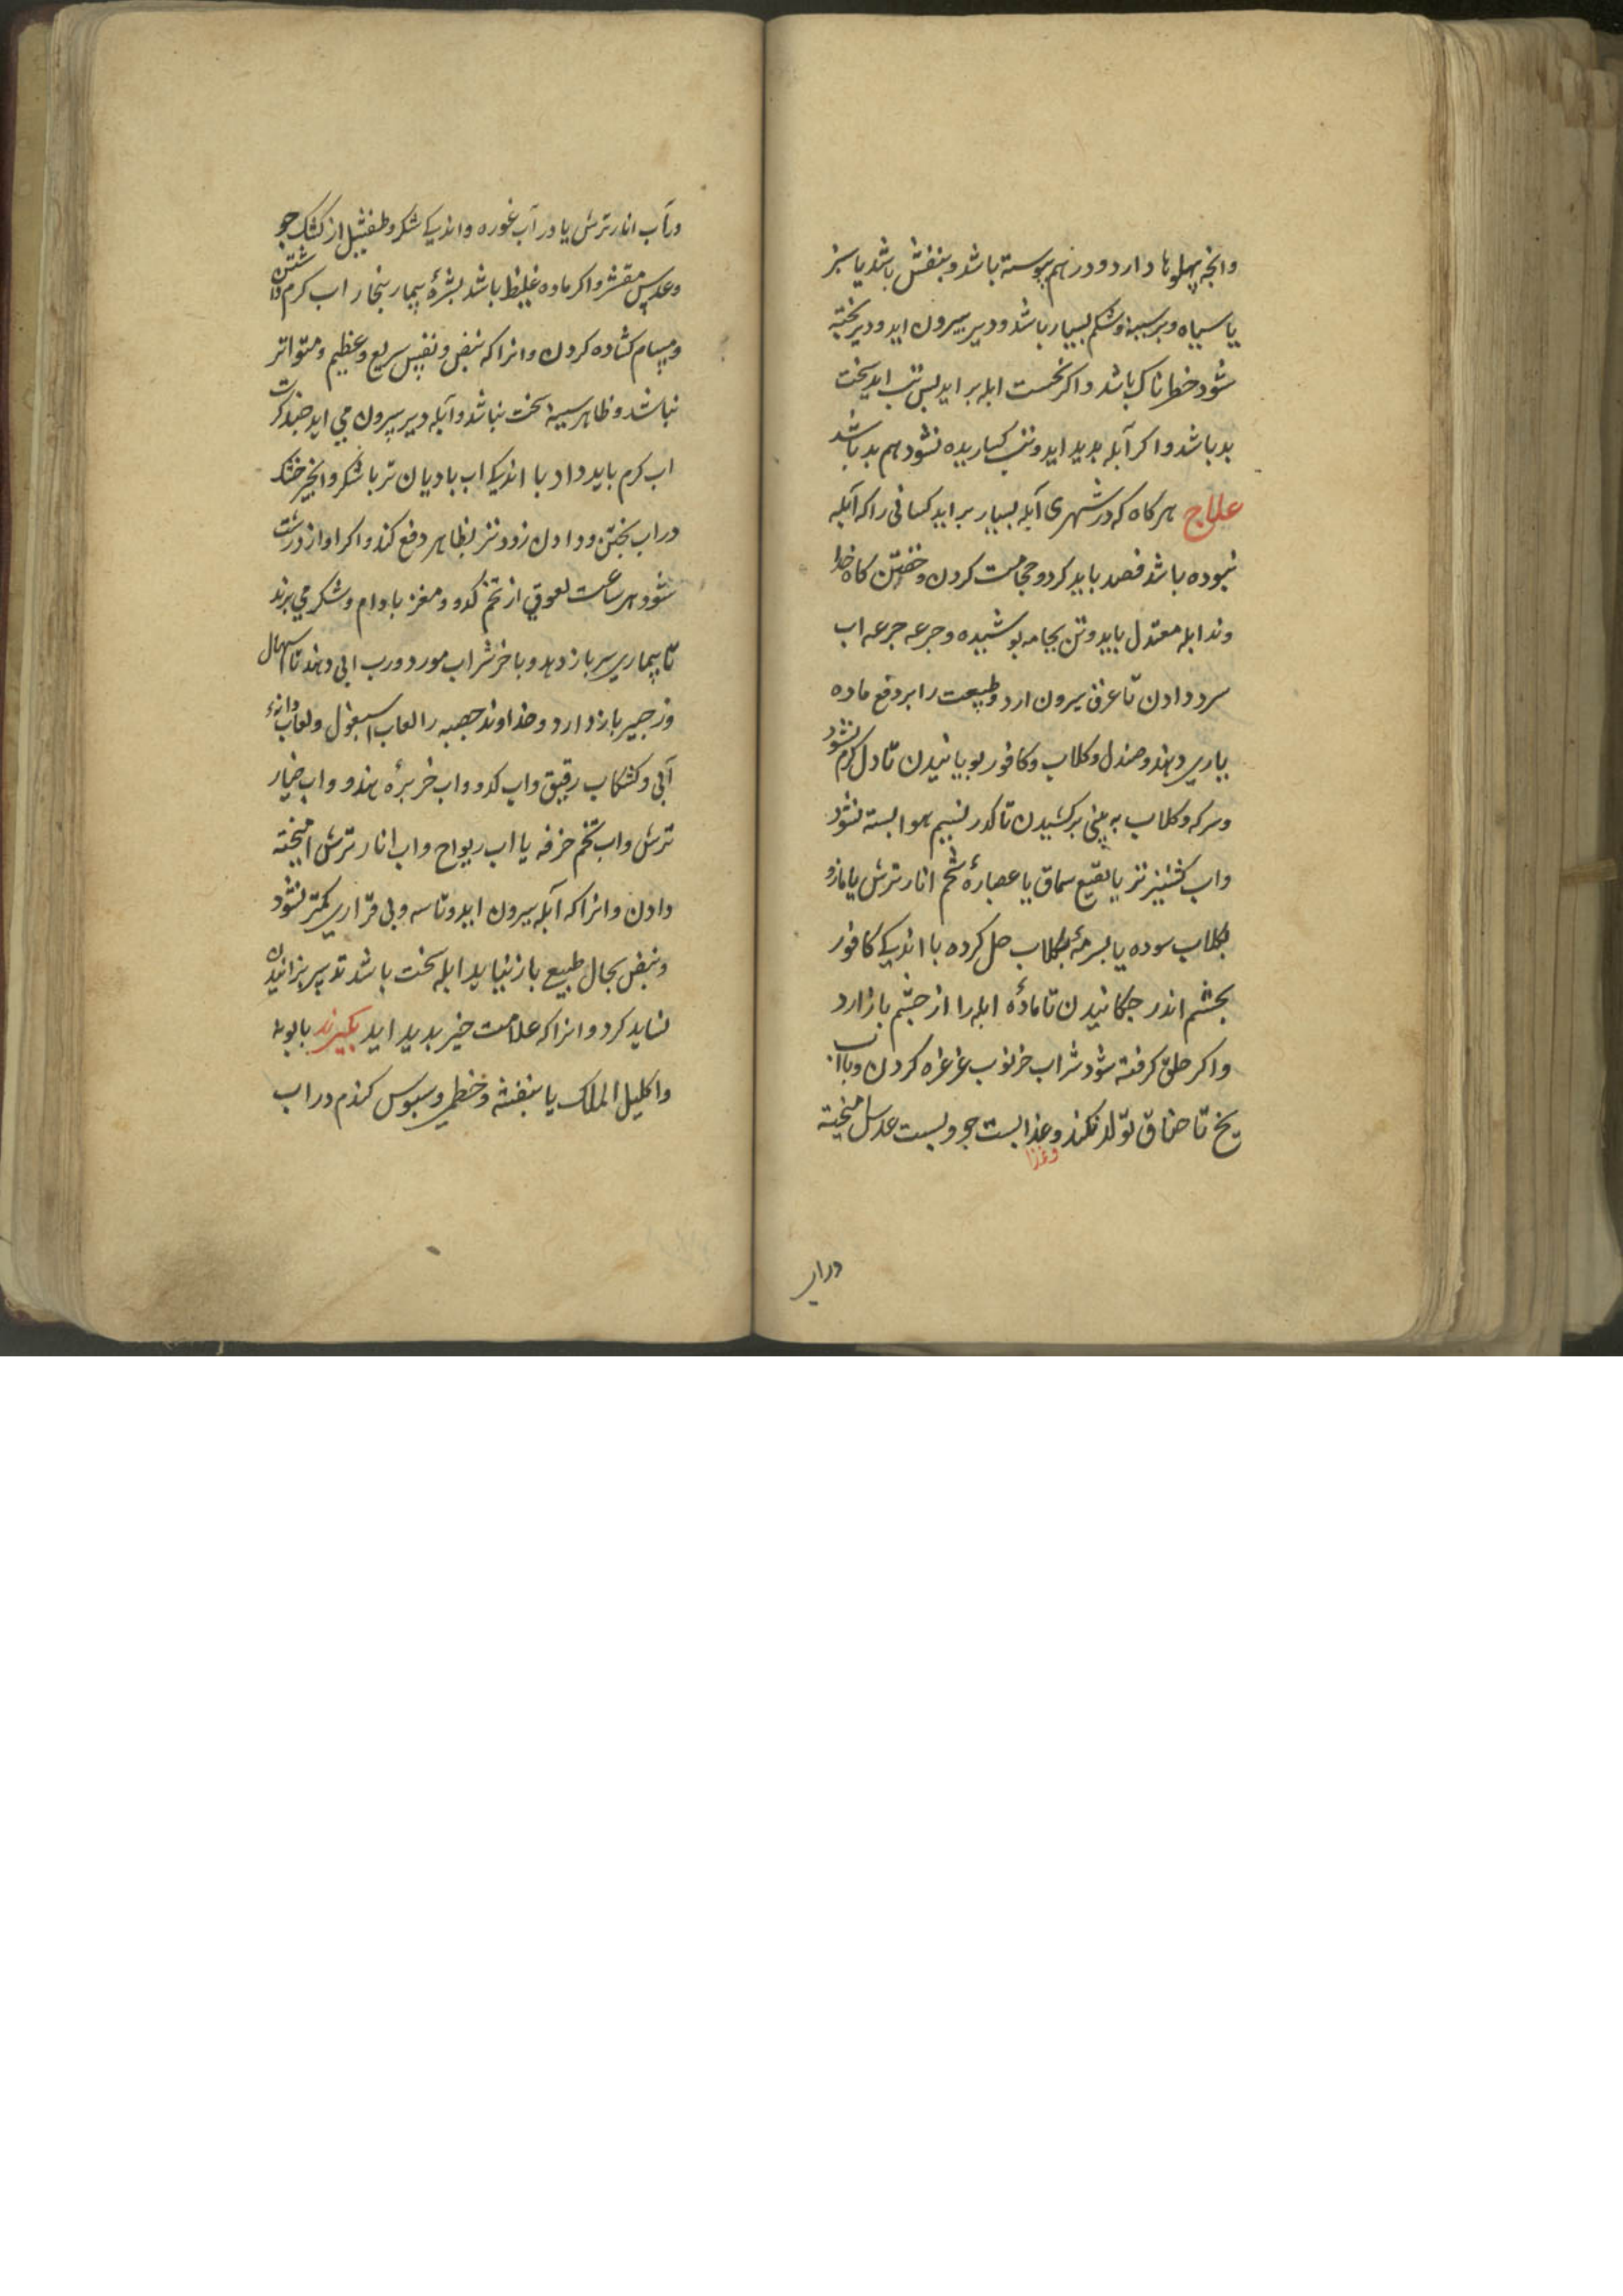 وانچه پهلوها دارد و در هم پیوسته باشد و بنفش باشد یا سبز
یا سیاه و بر سینه و شکم بسیار باشد و دیر بیرون اید و دیر پخته
شود خطرناک باشد و اکر نخست ابله بر اید پس تب اید سخت
بد باشد و اکر آبله بدید اید و تب کساریده نشود هم بد باشد
علاج هر کاه که در شهری آبله بسیار بر اید کسانی را که آبله
نبوده باشد فصد باید کرد و حجامت کردن و خفتن کاه خدا
وند ابله معتدل باید و تن بجامه پوشیده و جرعه جرعه اب
سرد دادن تا عرق بیرون ارد و طبیعت را بر دفع ماده
یاری دهد و صندل و کلاب و کافور بویانیدن تا دل کرم نشود
و سرکه و کلاب به بینی برکشیدن تا کذر نسیم هوا بسته نشود
و اب کشنیز تر یا نقیع سماق یا عصارهٔ شحم انار ترش یا مازو
بکلاب سوده یا بسرمهٔ بکلاب حل کرده با اندکی کافور
بچشم اندر چکانیدن تا مادهٔ ابله را از چشم باز دارد
و اکر حلق کرفته شود شراب خرنوب غرغره کردن و با اب
یخ تا خناق تولد نکند و غذا پست جو و پست عدس امیخته
وغذا
در اب
در آب انار ترش یا در آب غوره و اندکی شکر و طفشیل از کشک جو
و عدس مقشر و اکر ماده غلیظ باشد بشرهٔ بیمار ببخار اب کرم داشتن
و مسام کشاده کردن و انرا که نبض و نفس سریع و عظیم و متواتر
نباشد و ظاهر سینه سخت نباشد و آبله دیر بیرون می اید چند کرت
اب کرم باید داد با اندکی اب بادیان تر با شکر و انجیر خشک
در اب پختن و دادن زودتر بظاهر دفع کند و اکر اواز درشت
شود هر ساعت لعوقی از تخم کدو و مغز بادام و شکر می برند
تا بیماری سر باز دهد و باخر شراب مورد و رب ابی دهند تا اسهال
و زحیر باز دارد و خداوند حصبه را لعاب اسبغول و لعاب دانهٔ
آبی و کشکاب رقیق و اب کدو و اب خربزهٔ هندو و اب خیار
ترش و اب تخم خرفه یا اب ریواج و اب انار ترش امیخته
دادن و انرا که آبله بیرون اید و تاسه و بی قراری کمتر نشود
و نبض بحال طبیعی باز نیاید ابله سخت باشد تدبیر پزانیدن
نشاید کرد و انرا که علامت خیر بدید اید بکیرند بابونه
و اکلیل الملک یا بنفشه و خطمی و سبوس کندم در اب